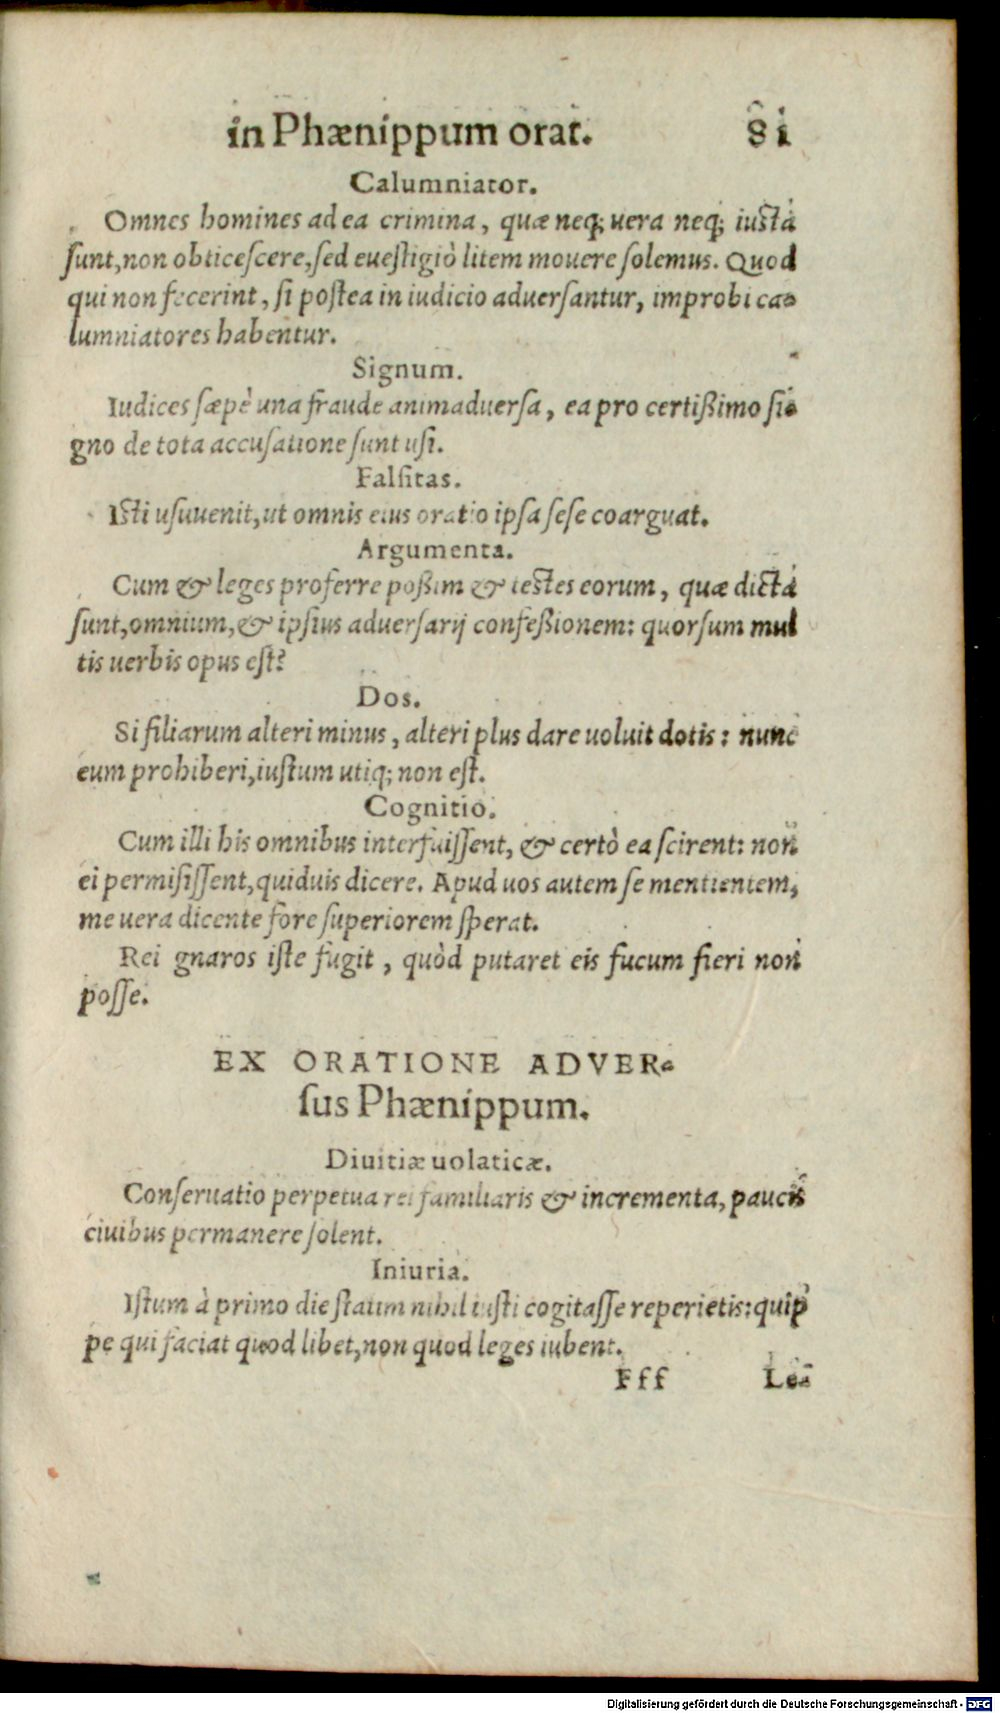 in Phænippum orat. 81
Calumniator.
Omnes homines ad ea crimina, quæ neq; uera neq; iusta
sunt, non obticescere, sed euestigiò litem mouere solemus. Quod
qui non fecerint, si postea in iudicio aduersantur, improbi ca-
lumniatores habentur.
Signum.
Iudices sæpè una fraude animaduersa, ea pro certißimo si-
gno de tota accusatione sunt usi.
Falsitas.
Isti usuuenit, ut omnis eius oratio ipsa sese coarguat.
Argumenta.
Cum & leges proferre poßim & testes eorum, quæ dicta
sunt, omnium, & ipsius aduersarij confeßionem: quorsum mul
tis uerbis opus est?
Dos.
Si filiarum alteri minus, alteri plus dare uoluit dotis: nunc
eum prohiberi, iustum utiq; non est.
Cognitio.
Cum illi his omnibus interfuissent, & certò ea scirent: non
ei permisissent, quiduis dicere. Apud uos autem se mentientem,
me uera dicente fore superiorem sperat.
Rei gnaros iste fugit, quòd putaret eis fucum fieri non
posse.
EX ORATIONE ADVER-
sus Phænippum.
Diuitiæ uolaticæ.
Conseruatio perpetua rei familiaris & incrementa, paucis
ciuibus permanere solent.
Iniuria.
Istum à primo die statim nihil iusti cogitasse reperietis: quip
pe qui faciat quod libet, non quod leges iubent.
Fff Le-
Digitalisierung gefördert durch die Deutsche Forschungsgemeinschaft - DFG